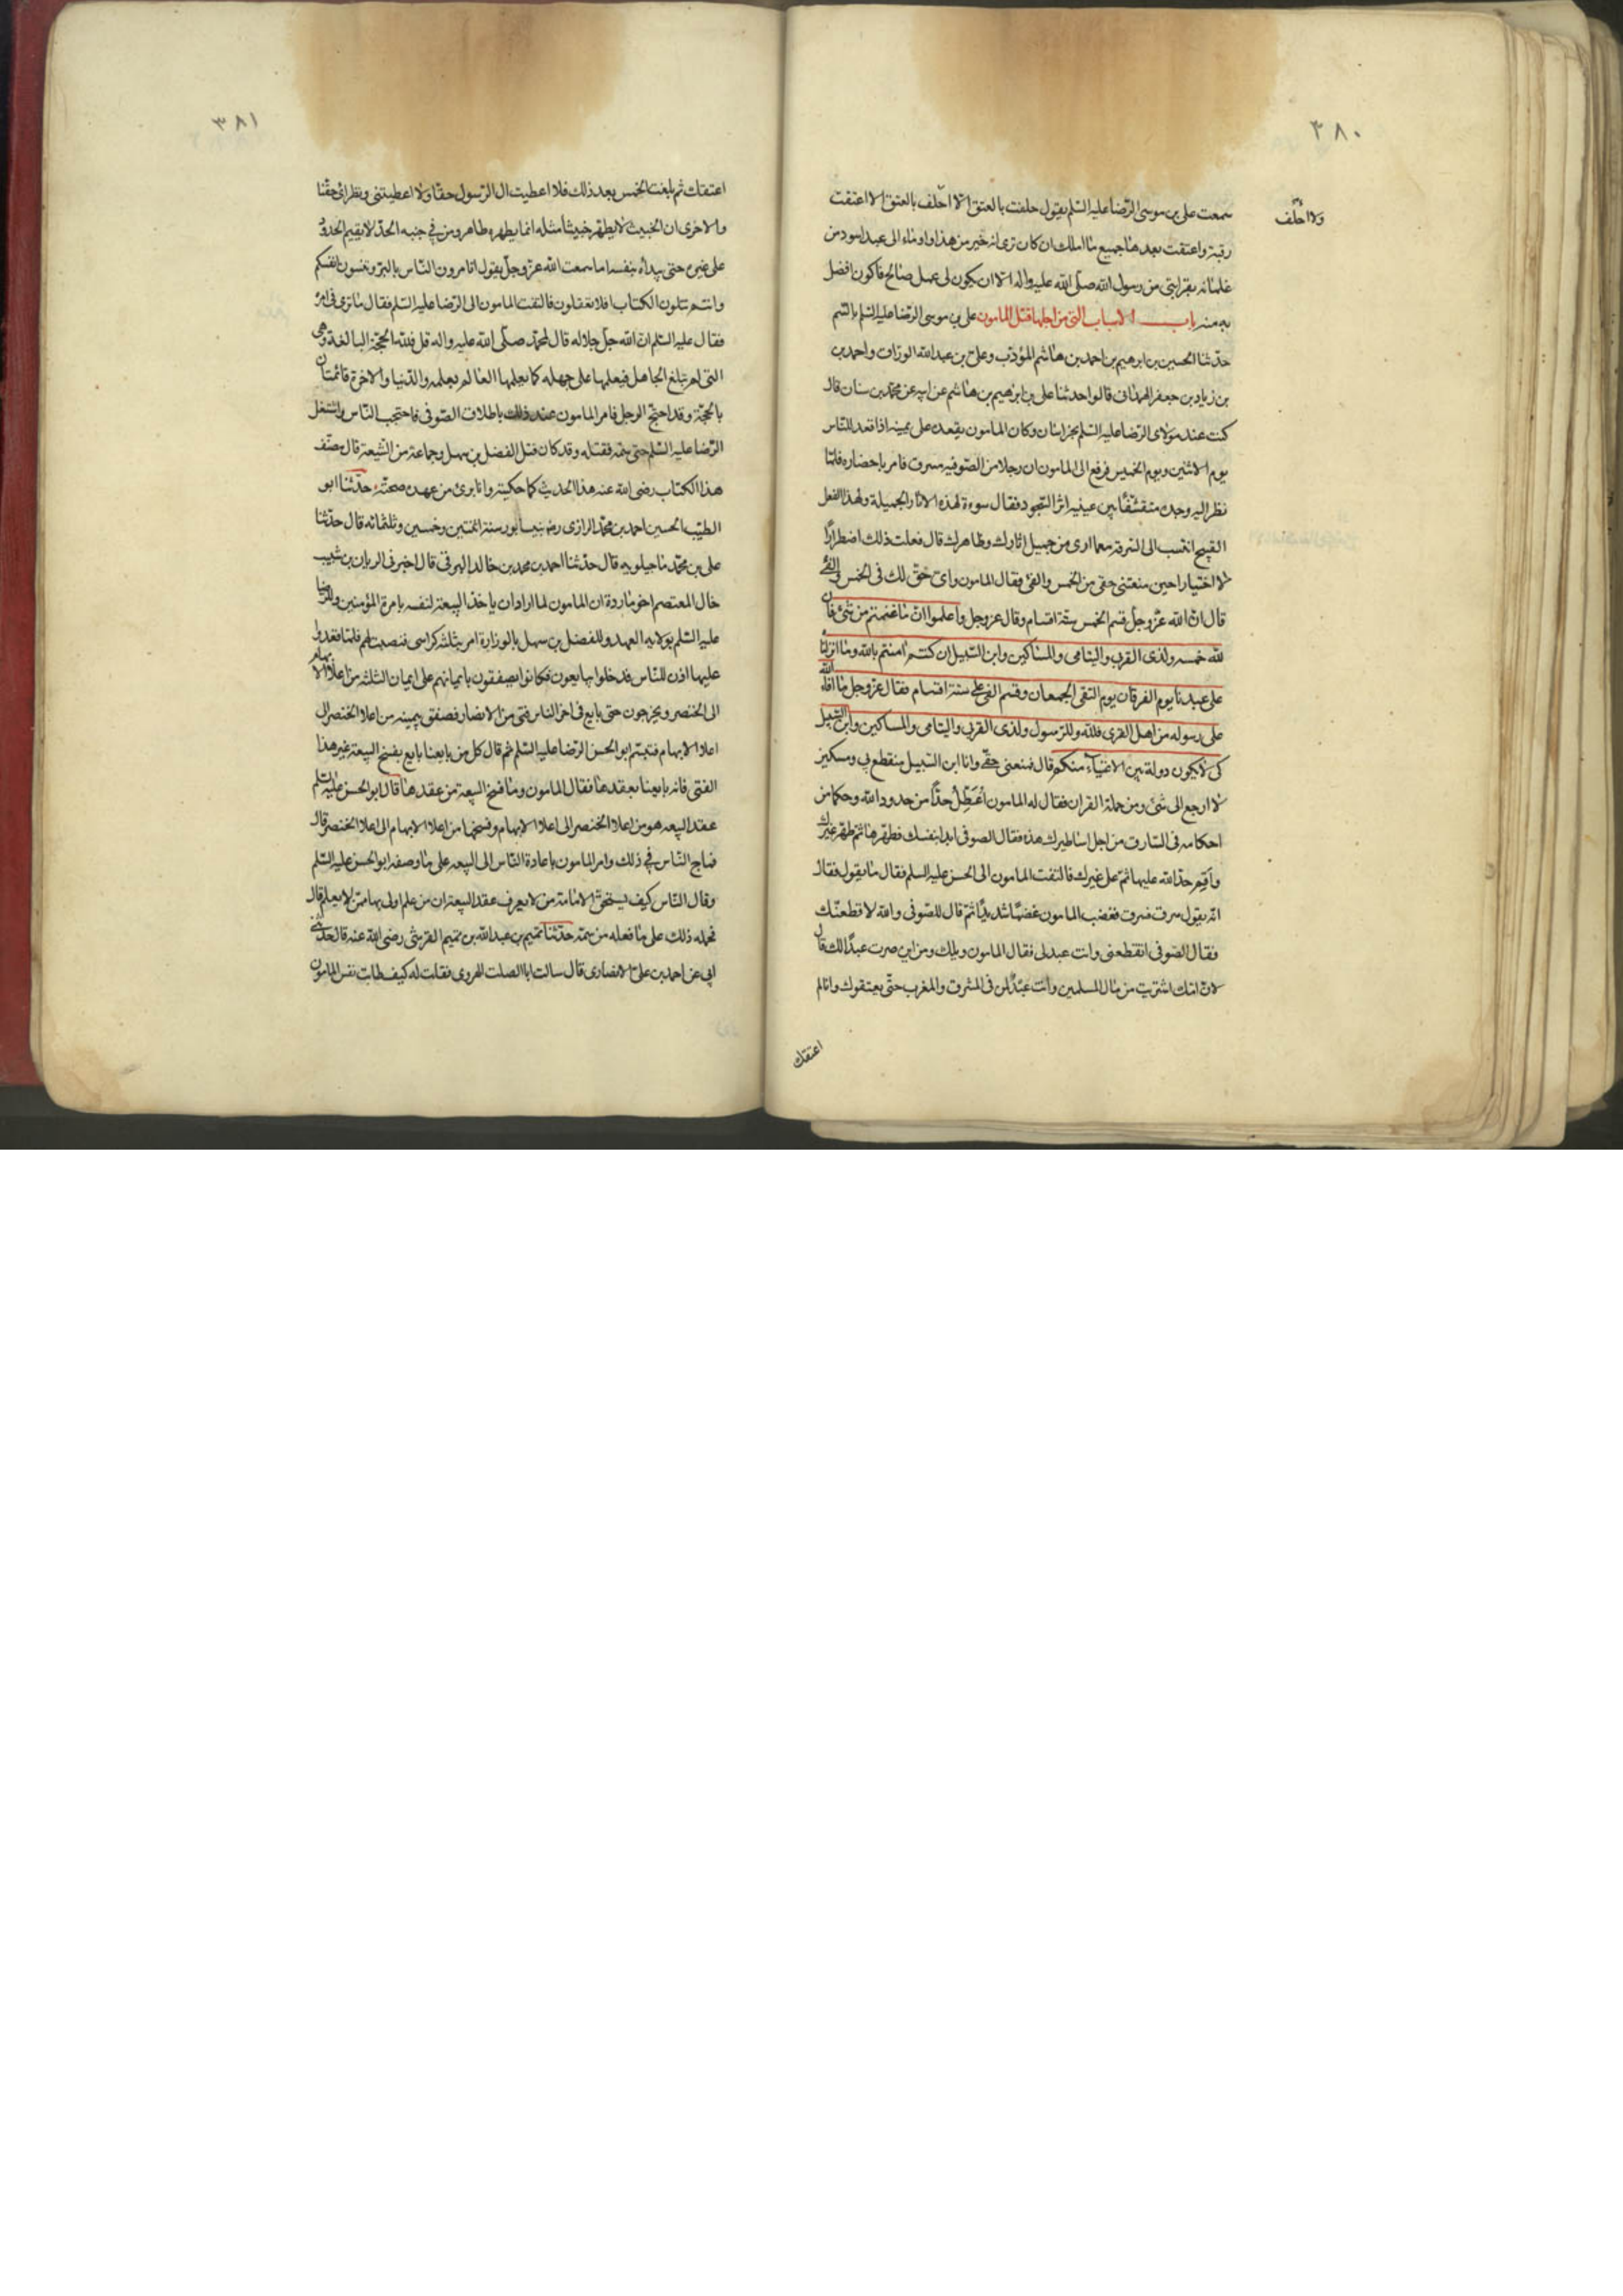 ٣٨٠
ولا احلف
سمعت على بن موسى الرّضا عليه السّلم يقول حلفت بالعتق الّا احلف بالعتق الا اعتقت
رقبة واعتقت بعدها جميع ما املك ان كان ترى انه خير من هذا واوماء الى عبد اسود من
غلمانه بقرابتى من رسول الله صلّى الله عليه واله الّا ان يكون لى عمل صالح فاكون افضل
به منه باب الاسباب التى من اجلها قتل المامون على بن موسى الرّضا عليه السّلم بالسّم
حدّثنا الحسين بن ابرهيم بن احمد بن هاشم المؤدّب وعلى بن عبد الله الورّاق واحمد بن
بن زياد بن جعفر الهمدانى قالوا حدثنا على بن ابرهيم بن هاشم عن ابيه عن محمّد بن سنان قال
كنت عند مولاى الرّضا عليه السّلم بخراسان وكان المامون يقعده على يمينه اذا قعد للنّاس
يوم الاثنين ويوم الخميس فرفع الى المامون ان رجلا من الصّوفيه سرق فامر باحضاره فلمّا
نظر اليه وجده متقشّفًا بين عينيه اثر السّجود فقال سوءة لهذه الاثار الجميلة ولهذا الفعل
القبيح اتنسب الى السّرقة مع ما ارى من جميل اثارك وظاهرك قال فعلت ذلك اضطرارًا
لا اختيارا حين منعتنى حقى من الخمس والفئ فقال المامون واىّ حقّ لك فى الخمس والفئ
قال انّ الله عزّ وجلّ قسم الخمس ستّة اقسام وقال عزّ وجل واعلموا انّ ما غنمتم من شئ فان
لله خمسه ولذى القربى واليتامى والمساكين وابن السّبيل ان كنتم امنتم بالله وما انزلنا
على عبدنا يوم الفرقان يوم التقى الجمعان وقسم الفئ على ستّة اقسام فقال عزّ وجل ما افاء الله
على رسوله من اهل القرى فلله وللرّسول ولذى القربى واليتامى والمساكين وابن السّبيل
كى لا يكون دولة بين الاغنياء منكم قال فمنعتنى حقّى وانا ابن السّبيل منقطع بى ومسكين
لا ارجع الى شئ ومن حملة القران فقال له المامون اُعَطِّلُ حدًّا من حدود الله وحكما من
احكامه فى السّارق من اجل اساطيرك هذه فقال الصوفى ابدا بنفسك فطهّرها ثمّ طهّر غيرك
واَقِمْ حدّ الله عليها ثمّ على غيرك فالتفت المامون الى الحسن عليه السلم فقال ما يقول فقال
انّه يقول سرقت فسرق فغضب المامون غضبًا شديدًا ثمّ قال للصّوفى والله لاقطعنّك
فقال الصّوفى اتقطعنى وانت عبد لى فقال المامون ويلك ومن اين صرت عبدًا لك قال
لانّ امّك اشتريت من مال المسلمين وانت عبد لمن فى المشرق والمغرب حتّى يعتقوك وانا لم
اعتقك
٣٨١
اعتقك ثم بلعت الخمس بعد ذلك فلا اعطيت ال الرّسول حقّا ولا اعطيتنى ونظرائى حقّنا
والاخرى ان الخبيث لا يطهّر خبيثًا مثله انما يطهره طاهر ومن فى جنبه الحدّ لا يقيم الحدود
على غيره حتى يبدأ بنفسه اما سمعت الله عزّ وجلّ يقول اتامرون النّاس بالبرّ وتنسون انفسكم
وانتم تتلون الكتاب افلا تعقلون فالتفت المامون الى الرّضا عليه السّلم فقال ما ترى فى امره
فقال عليه السّلم انّ الله جلّ جلاله قال لمحمّد صلّى الله عليه واله قل فللّه الحجّة البالغة وهى
التى لم تبلغ الجاهل فيعلمها على جهله كما يعلمها العالم بعلمه والدّنيا والاخرة قائمتان
بالحجّة وقد احتجّ الرجل فامر المامون عند ذلك باطلاق الصّوفى فاحتجب النّاس واشتغل
الرّضا عليه السّلم حتى سمّه فقتله وقد كان قتل الفضل بن سهل وجماعة من الشّيعة قال مصنّف
هذا الكتاب رضى الله عنه هذا الحديث كما حكيته وانا برئ من عهدة صحّته حدّثنا ابو
الطيّب الحسين احمد بن محمّد الرازى رض بنيسابور سنة اثنتين وخمسين وثلثمائه قال حدّثنا
على بن محمّد ماجيلويه قال حدّثنا احمد بن محمد بن خالد البرقى قال اخبرنى الريان بن شبيب
خال المعتصم اخو ماردة ان المامون لما اراد ان ياخذ البيعة لنفسه بامرة المؤمنين وللرّضا
عليه السّلم بولاية العهد وللفضل بن سهل بالوزارة امر بثلثة كراسى فنصبت لهم فلمّا قعدوا
عليها اذن للنّاس فدخلوا يبايعون فكانوا يصفقون بايمانهم على ايمان الثلثه من اعلا الابهام
الى الخنصر ويخرجون حتى بايع فى اخر الناس فتى من الانصار فصفق بيمينه من اعلا الخنصر الى
اعلا الابهام فتبسّم ابو الحسن الرّضا عليه السّلم ثم قال كل من بايعنا بايع بفسخ البيعة غير هذا
الفتى فانه بايعنا بعقدها فقال المامون وما فسخ البيعة من عقدها قال ابو الحسن عليه السّلم
عقد البيعه هو من اعلا الخنصر الى اعلا الابهام وفسخها من اعلا الابهام الى اعلا الخنصر قال
فماج النّاس فى ذلك وامر المامون باعادة النّاس الى البيعه على ما وصفه ابو الحسن عليه السّلم
وقال النّاس كيف يستحقّ الامامة من لا يعرف عقد البيعة ان من علم اولى بها ممّن لا يعلم قال
فحمله ذلك على ما فعله من سمّه حدّثنا تميم بن عبد الله بن تميم القرشى رضى الله عنه قال حدّثنى
ابى عن احمد بن على الانصارى قال سالت ابا الصلت الهروى فقلت له كيف طابت نفس المامون